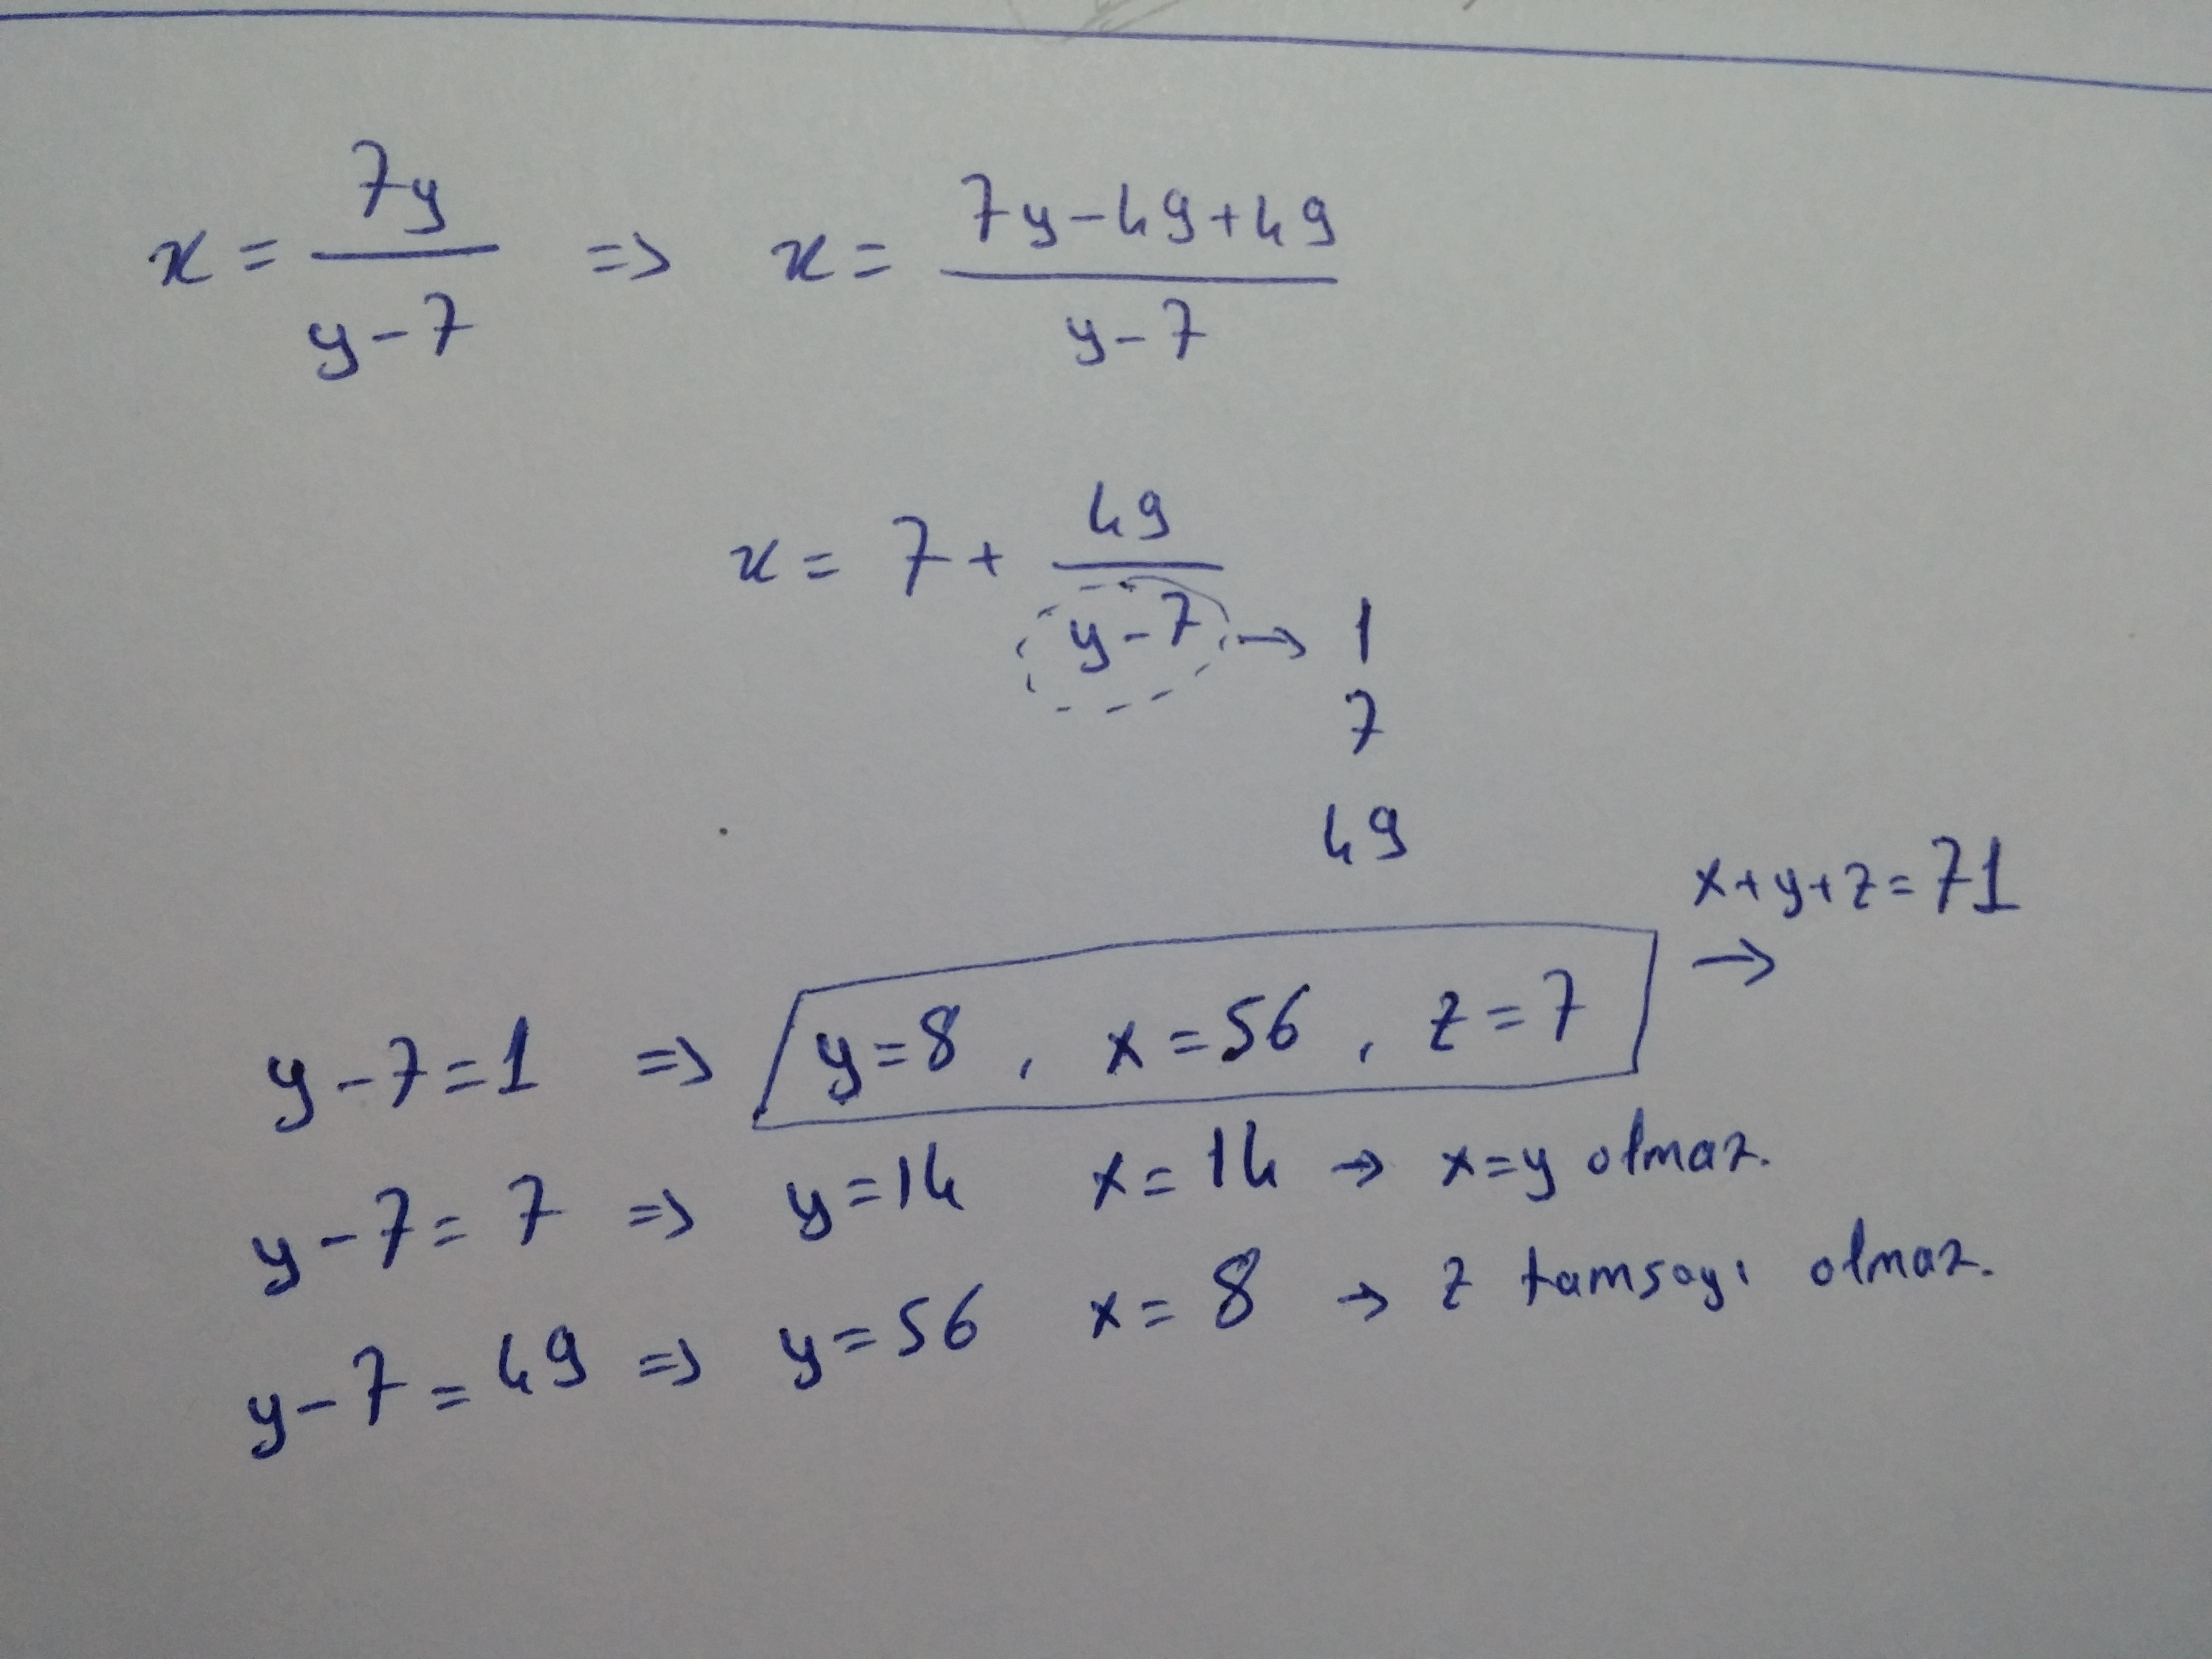 x = 7y / (y-7) => x = (7y-49+49) / (y-7)
x = 7 + 49 / (y-7) → 1
7
49
x+y+z=71
y-7=1 => y=8, x=56, z=7 →
y-7=7 => y=14 x=14 → x=y olmaz.
y-7=49 => y=56 x=8 → z tamsayı olmaz.